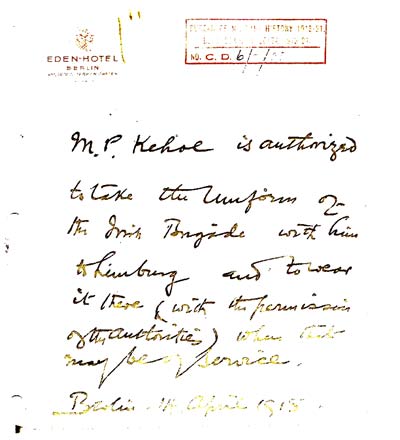 EDEN-HOTEL
BERLIN
NO. C.D. 6/
M.P. Kehoe is authorized
to take the Uniform of
the Irish Brigade with him
to Limburg and to wear
it there (with the permission
of the authorities) when that
may be of service.
Berlin April 1915.